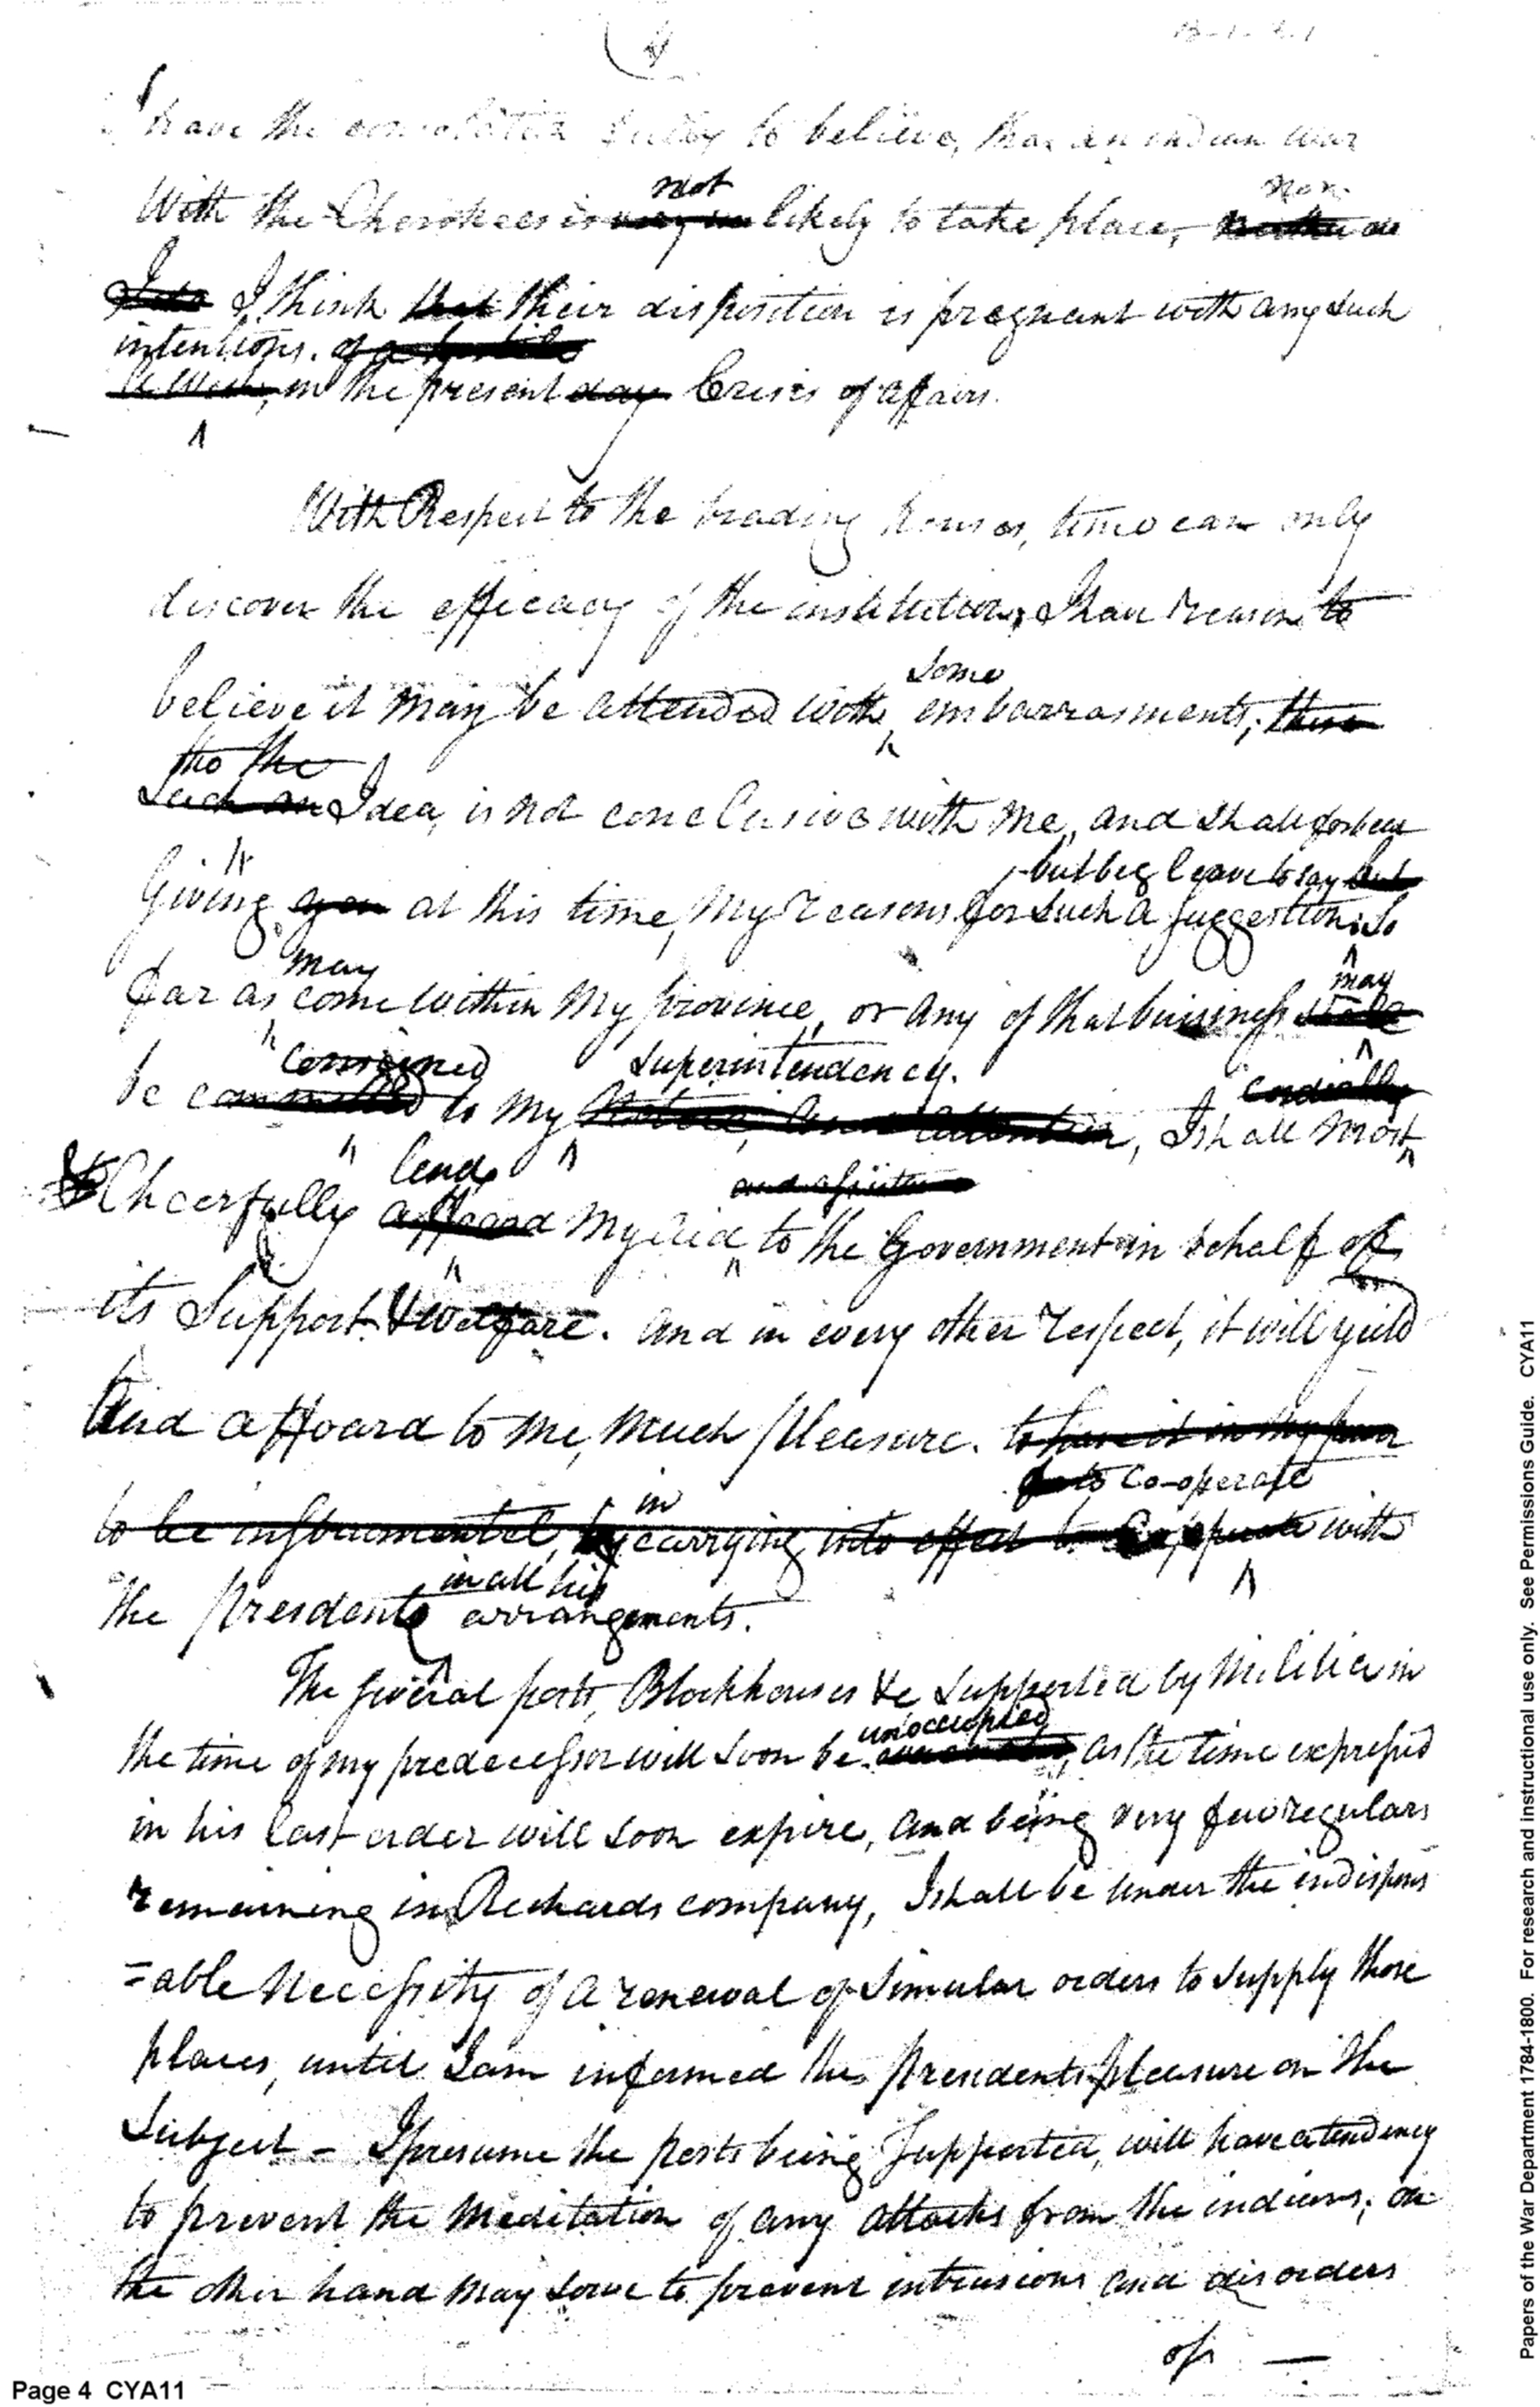 4
I have the consolation to believe, that an indian war
not
nor
With the Cherokees is likely to take place,
I think that their disposition is pregnant with any such
intentions. of a hostile
in the present day Crisis of affairs.
With Respect to the trading houses, time can only
discover the efficacy of the institution, I have reason to
some
believe it may be attended with embarrasments, these
tho the
Such an Idea, is not conclusive with me, and shall forbear
but beg leave to say but
Giving you at this time, My reasons for such a suggestion. So
may
may
far as come within My province, or any of that business shall
consigned
Superintendency.
cordially
be committed to My Notice, and attention, I shall Most
lend
and assistance
& Cheerfully affoard My aid to the Government in behalf of
its Support. & welfare. and in every other respect, it will yeild
And affoard to Me, Much pleasure. to have it in My power
to Co-operate
in
to be instrumental, by carrying into effect to Co,operate with
in all his
the Presidents arrangements.
The several posts, Blockhouses &c Supported by Militia in
unoccupied
the time of my predecessor will soon be as the time expressed
in his last order will soon expire, and being very few regulars
remaining in Richards company, I shall be under the indispens
=able Necessity of a renewal of Simular orders to supply those
places, until I am informed the Presidents pleasure on the
Subject - I presume the posts being Supported, will have a tendency
to prevent the Meditation of any attacks from the indians, on
the other hand May serve to prevent intrusions and disorders
of —
Page 4 CYA11
Papers of the War Department 1784-1800. For research and instructional use only. See Permissions Guide. CYA11